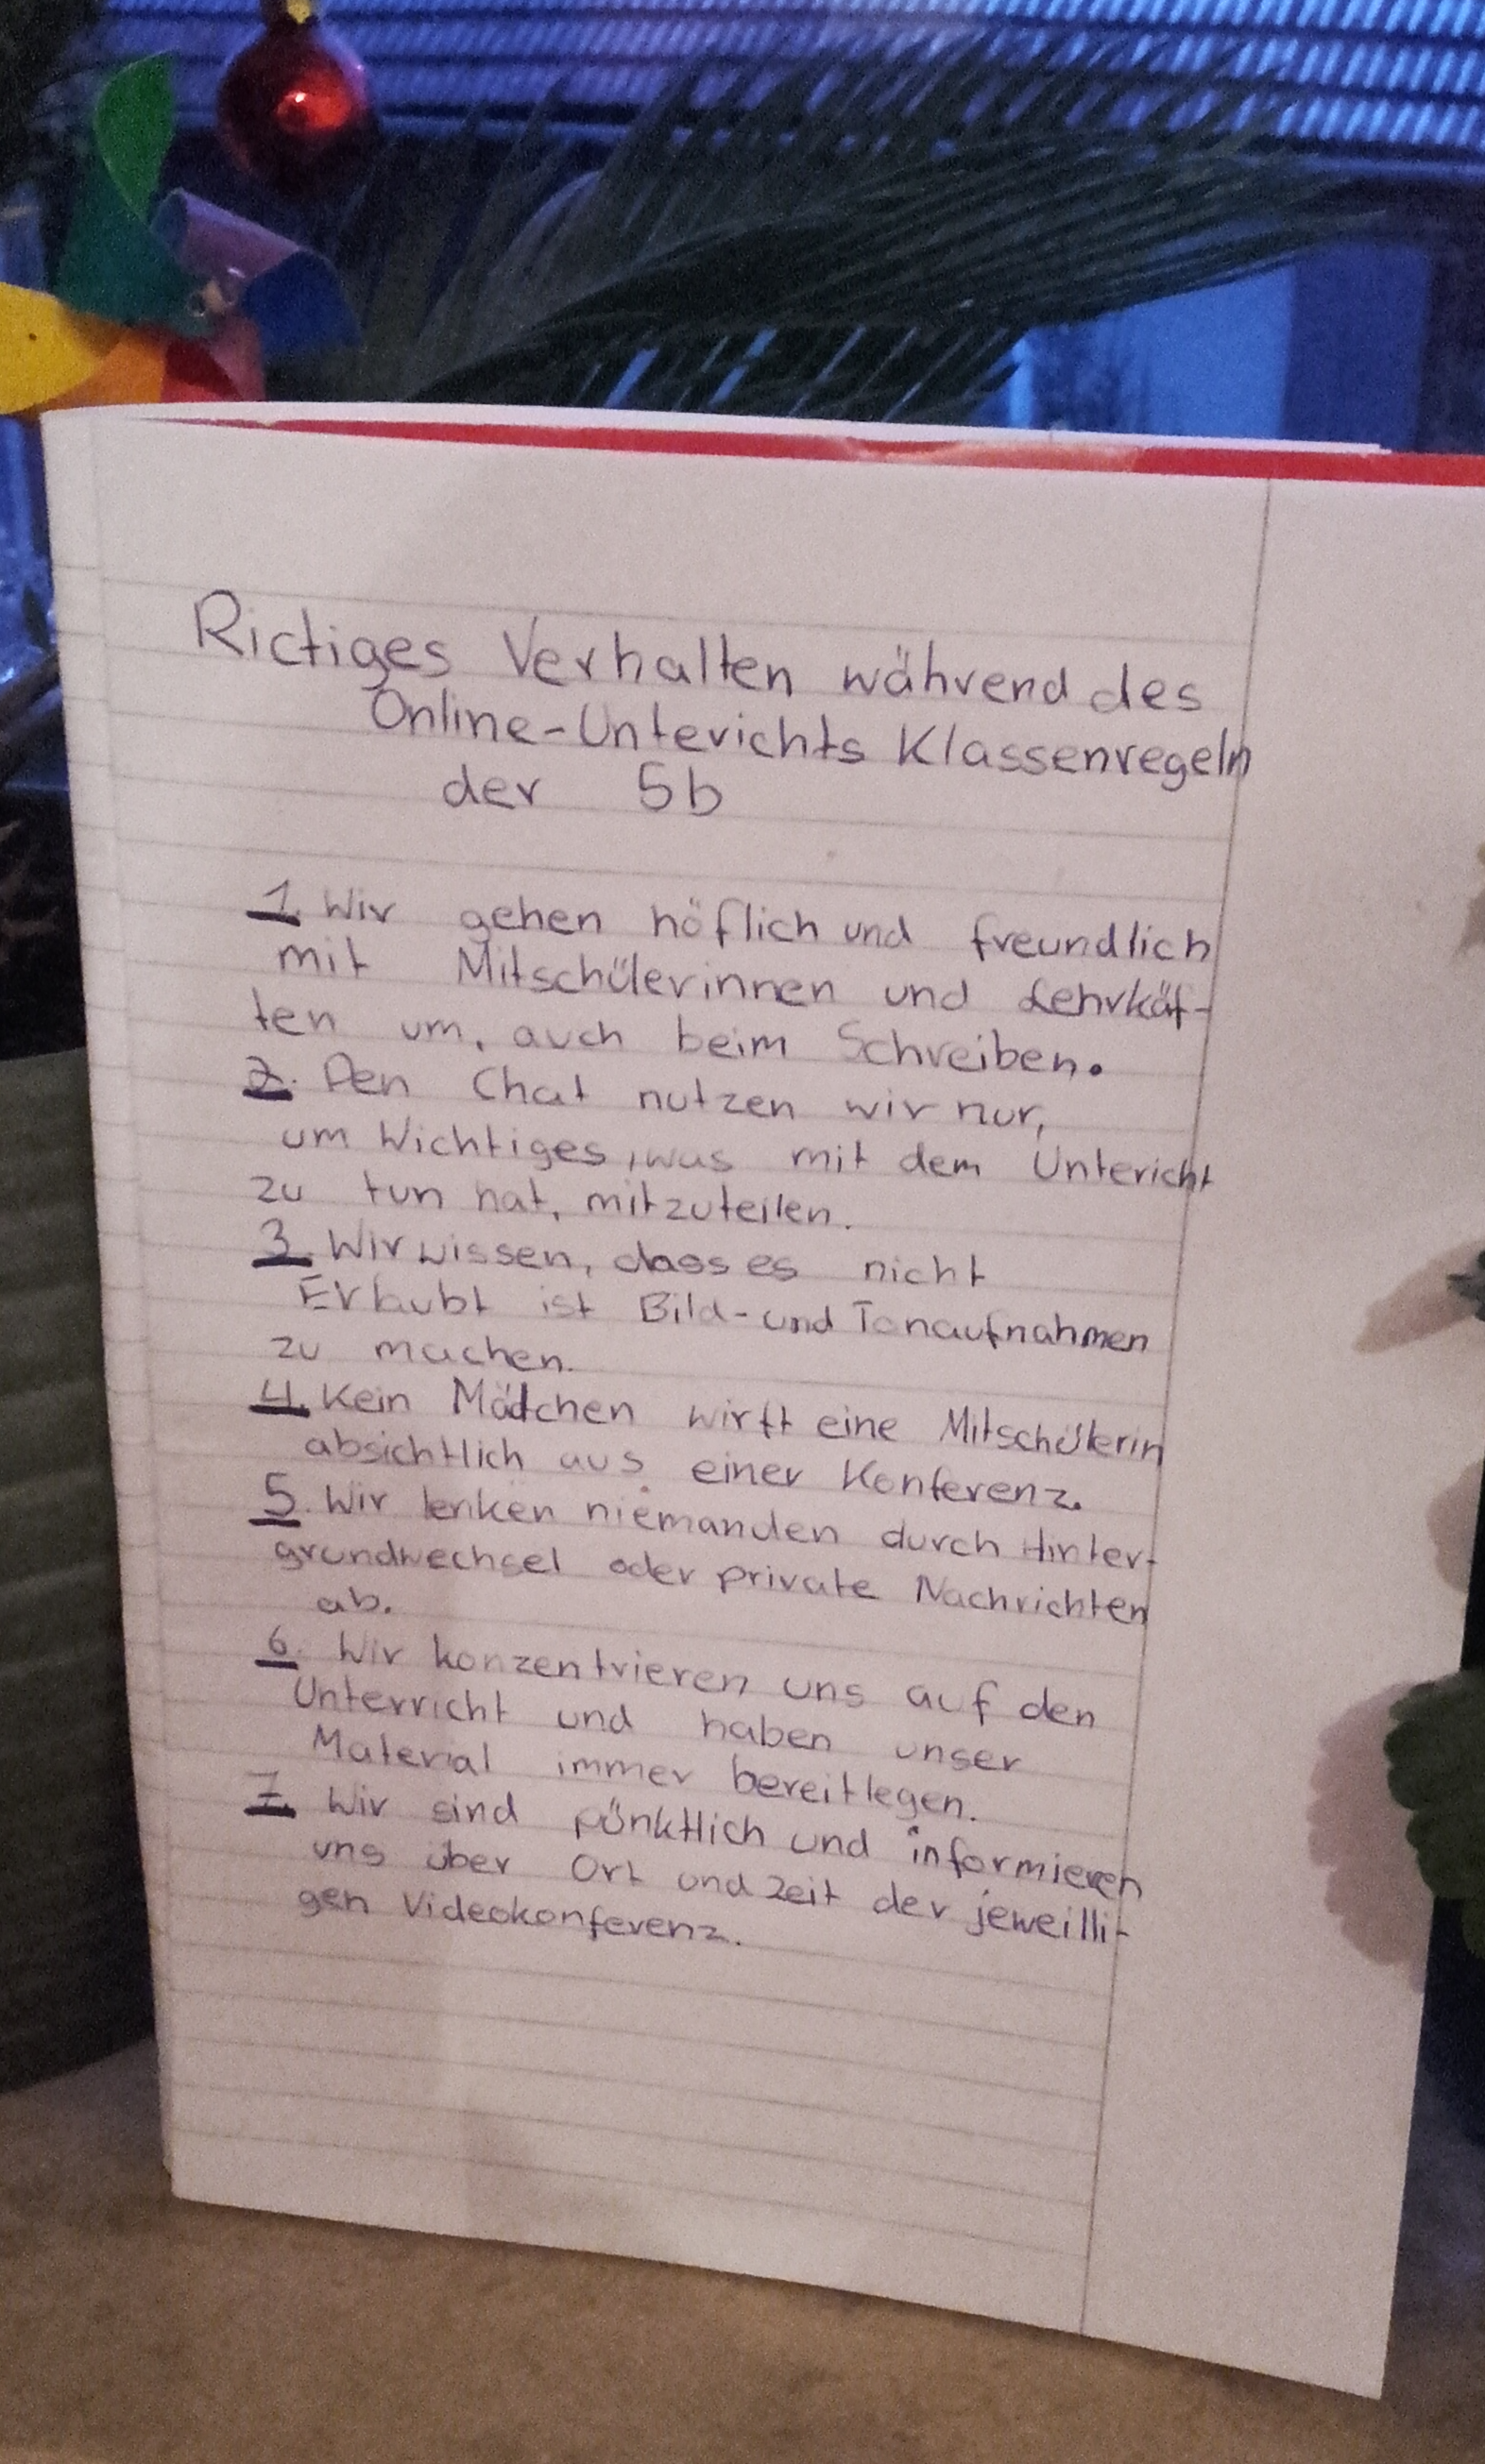 Rictiges Verhalten während des
Online-Unterichts Klassenregeln
der 5b
1. Wir gehen höflich und freundlich
mit Mitschülerinnen und Lehrkäf-
ten um, auch beim Schreiben.
2. Den Chat nutzen wir nur,
um Wichtiges, was mit dem Untericht
zu tun hat, mitzuteilen.
3. Wir wissen, dass es nicht
Erlaubt ist Bild- und Tonaufnahmen
zu machen.
4. Kein Mädchen wirft eine Mitschülerin
absichtlich aus einer Konferenz.
5. Wir lenken niemanden durch Hinter-
grundwechsel oder private Nachrichten
ab.
6. Wir konzentrieren uns auf den
Unterricht und haben unser
Material immer bereitlegen.
7. Wir sind pünktlich und informieren
uns über Ort und Zeit der jeweilli-
gen Videokonferenz.